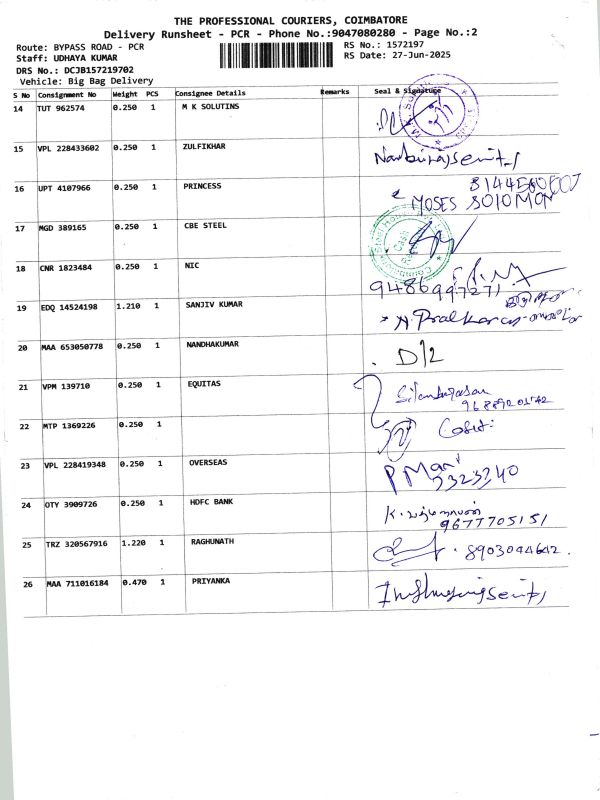 THE PROFESSIONAL COURIERS, COIMBATORE
Delivery Runsheet - PCR - Phone No.:9047080280 - Page No.:2
Route: BYPASS ROAD - PCR RS No.: 1572197
Staff: UDHAYA KUMAR RS Date: 27-Jun-2025
DRS No.: DCJB157219702
Vehicle: Big Bag Delivery
S No Consignment No Weight PCS Consignee Details Remarks Seal & Signature
14 TUT 962574 0.250 1 M K SOLUTINS
15 VPL 228433602 0.250 1 ZULFIKHAR
16 UPT 4107966 0.250 1 PRINCESS
MOSES SOLOMON
17 MGD 389165 0.250 1 CBE STEEL
18 CNR 1823484 0.250 1 NIC
9486997271
19 EDQ 14524198 1.210 1 SANJIV KUMAR
20 MAA 653050778 0.250 1 NANDHAKUMAR
D/2
21 VPM 139710 0.250 1 EQUITAS
Silambarasan
22 MTP 1369226 0.250 1
23 VPL 228419348 0.250 1 OVERSEAS
P Mari
7323340
24 OTY 3909726 0.250 1 HDFC BANK
9677705151
25 TRZ 320567916 1.220 1 RAGHUNATH
8903044642.
26 MAA 711016184 0.470 1 PRIYANKA